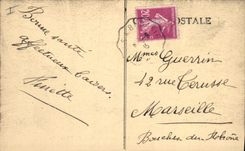 Bonne santé
affectueux baisers
Ninette
POSTALE
20
Mme Guerrin
42 rue Terusse
Marseille
Bouches du Rhône